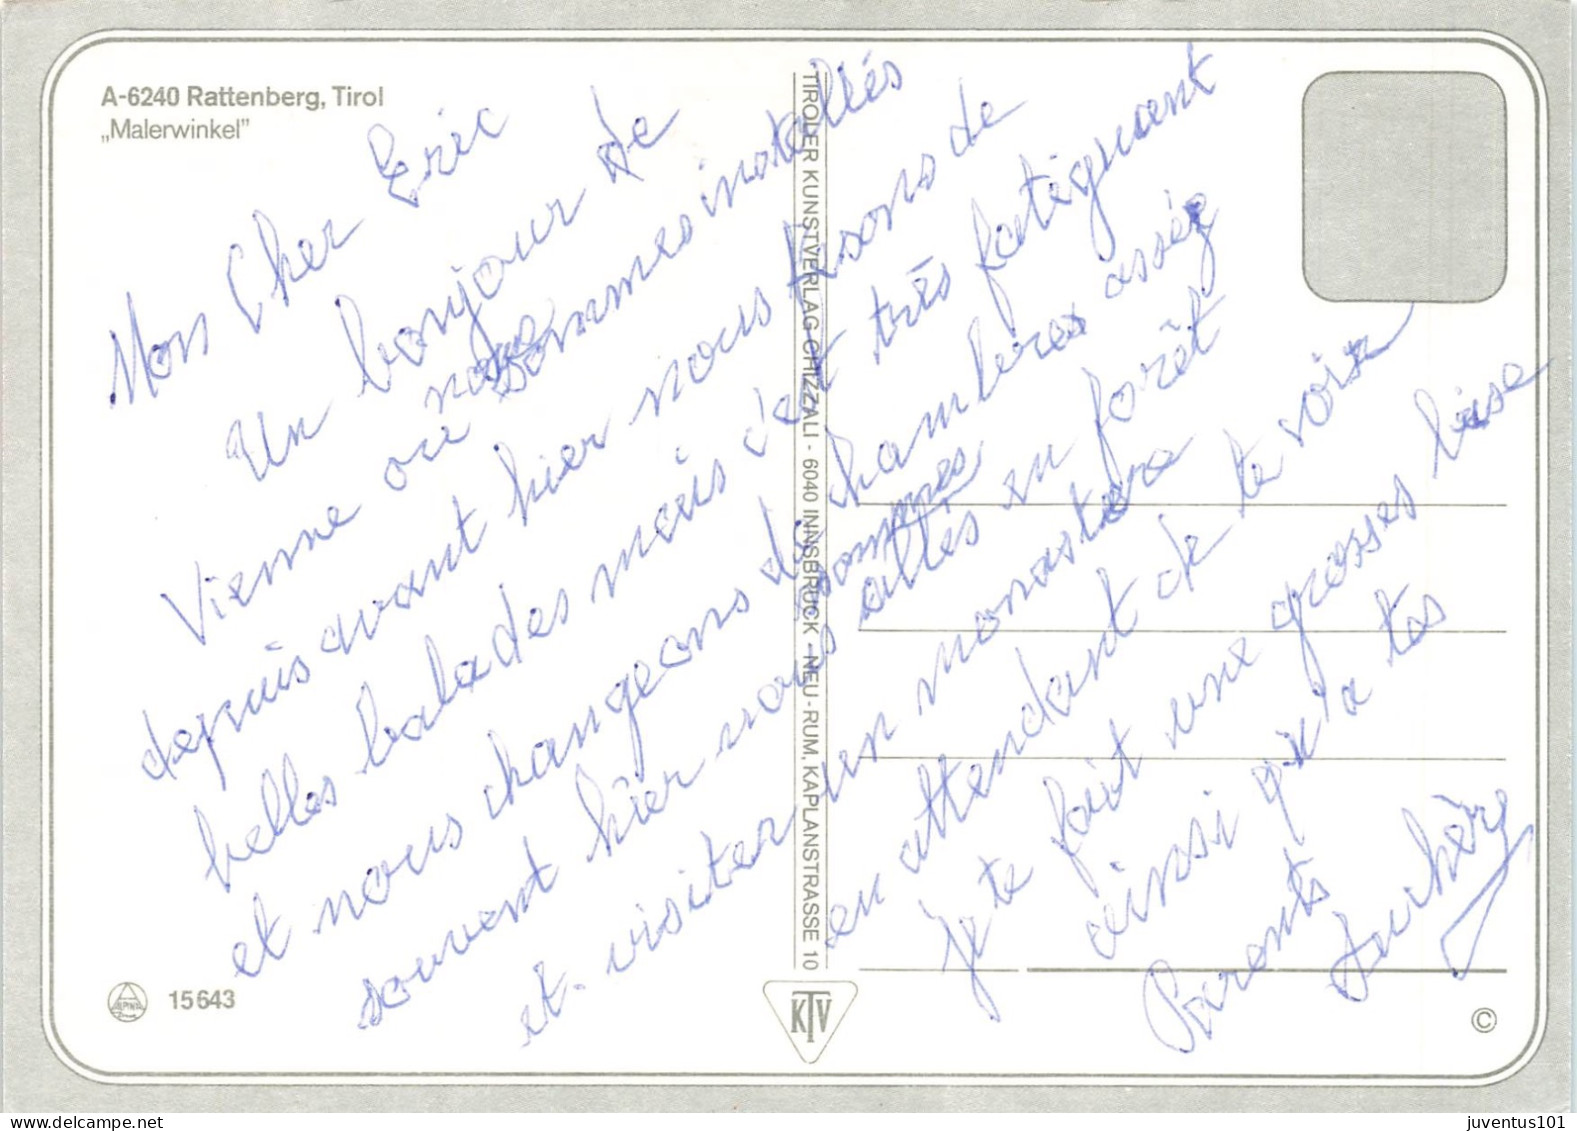 A-6240 Rattenberg, Tirol
„Malerwinkel”
Mon Cher Eric
Un bonjour de
Vienne ou nous sommes installés
depuis avant hier nous faisons de
belles balades mais c'est très fatiguant
et nous changeons de chambres assez
souvent hier nous sommes allés en forêt
et visiter un monastere
en attendant de te voir
je te fait une grosses bise
ainsi qu'a tes
Parents
TIROLER KUNSTVERLAG CHIZZALI - 6040 INNSBRUCK - NEU-RUM, KAPLANSTRASSE 10
15643
KTV
©
juventus101